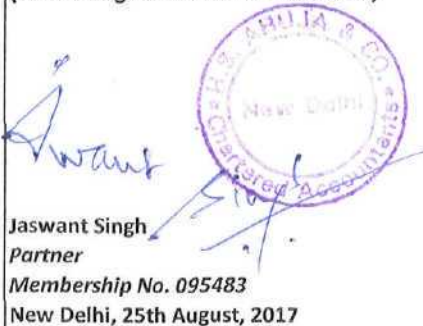 H.S. AHUJA & CO.
New Delhi
Chartered Accountants
Jaswant Singh
Partner
Membership No. 095483
New Delhi, 25th August, 2017